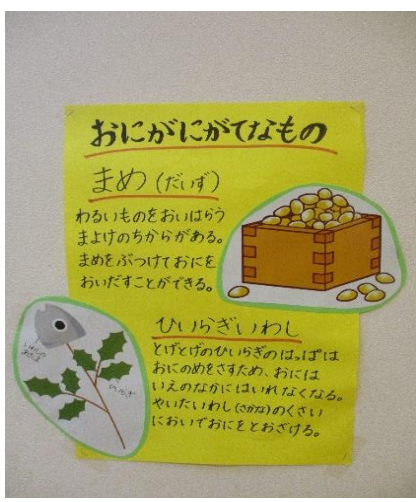 おにがにがてなもの
まめ(だいず)
わるいものをおいはらう
まよけのちからがある。
まめをぶつけておにを
おいだすことができる。
ひいらぎいわし
とげとげのひいらぎのはっぱは
おにのめをさすため、おには
いえのなかにはいれなくなる。
やいたいわし(さかな)のくさい
においでおにをとおざける。
いわしの
あたま
ひいらぎ